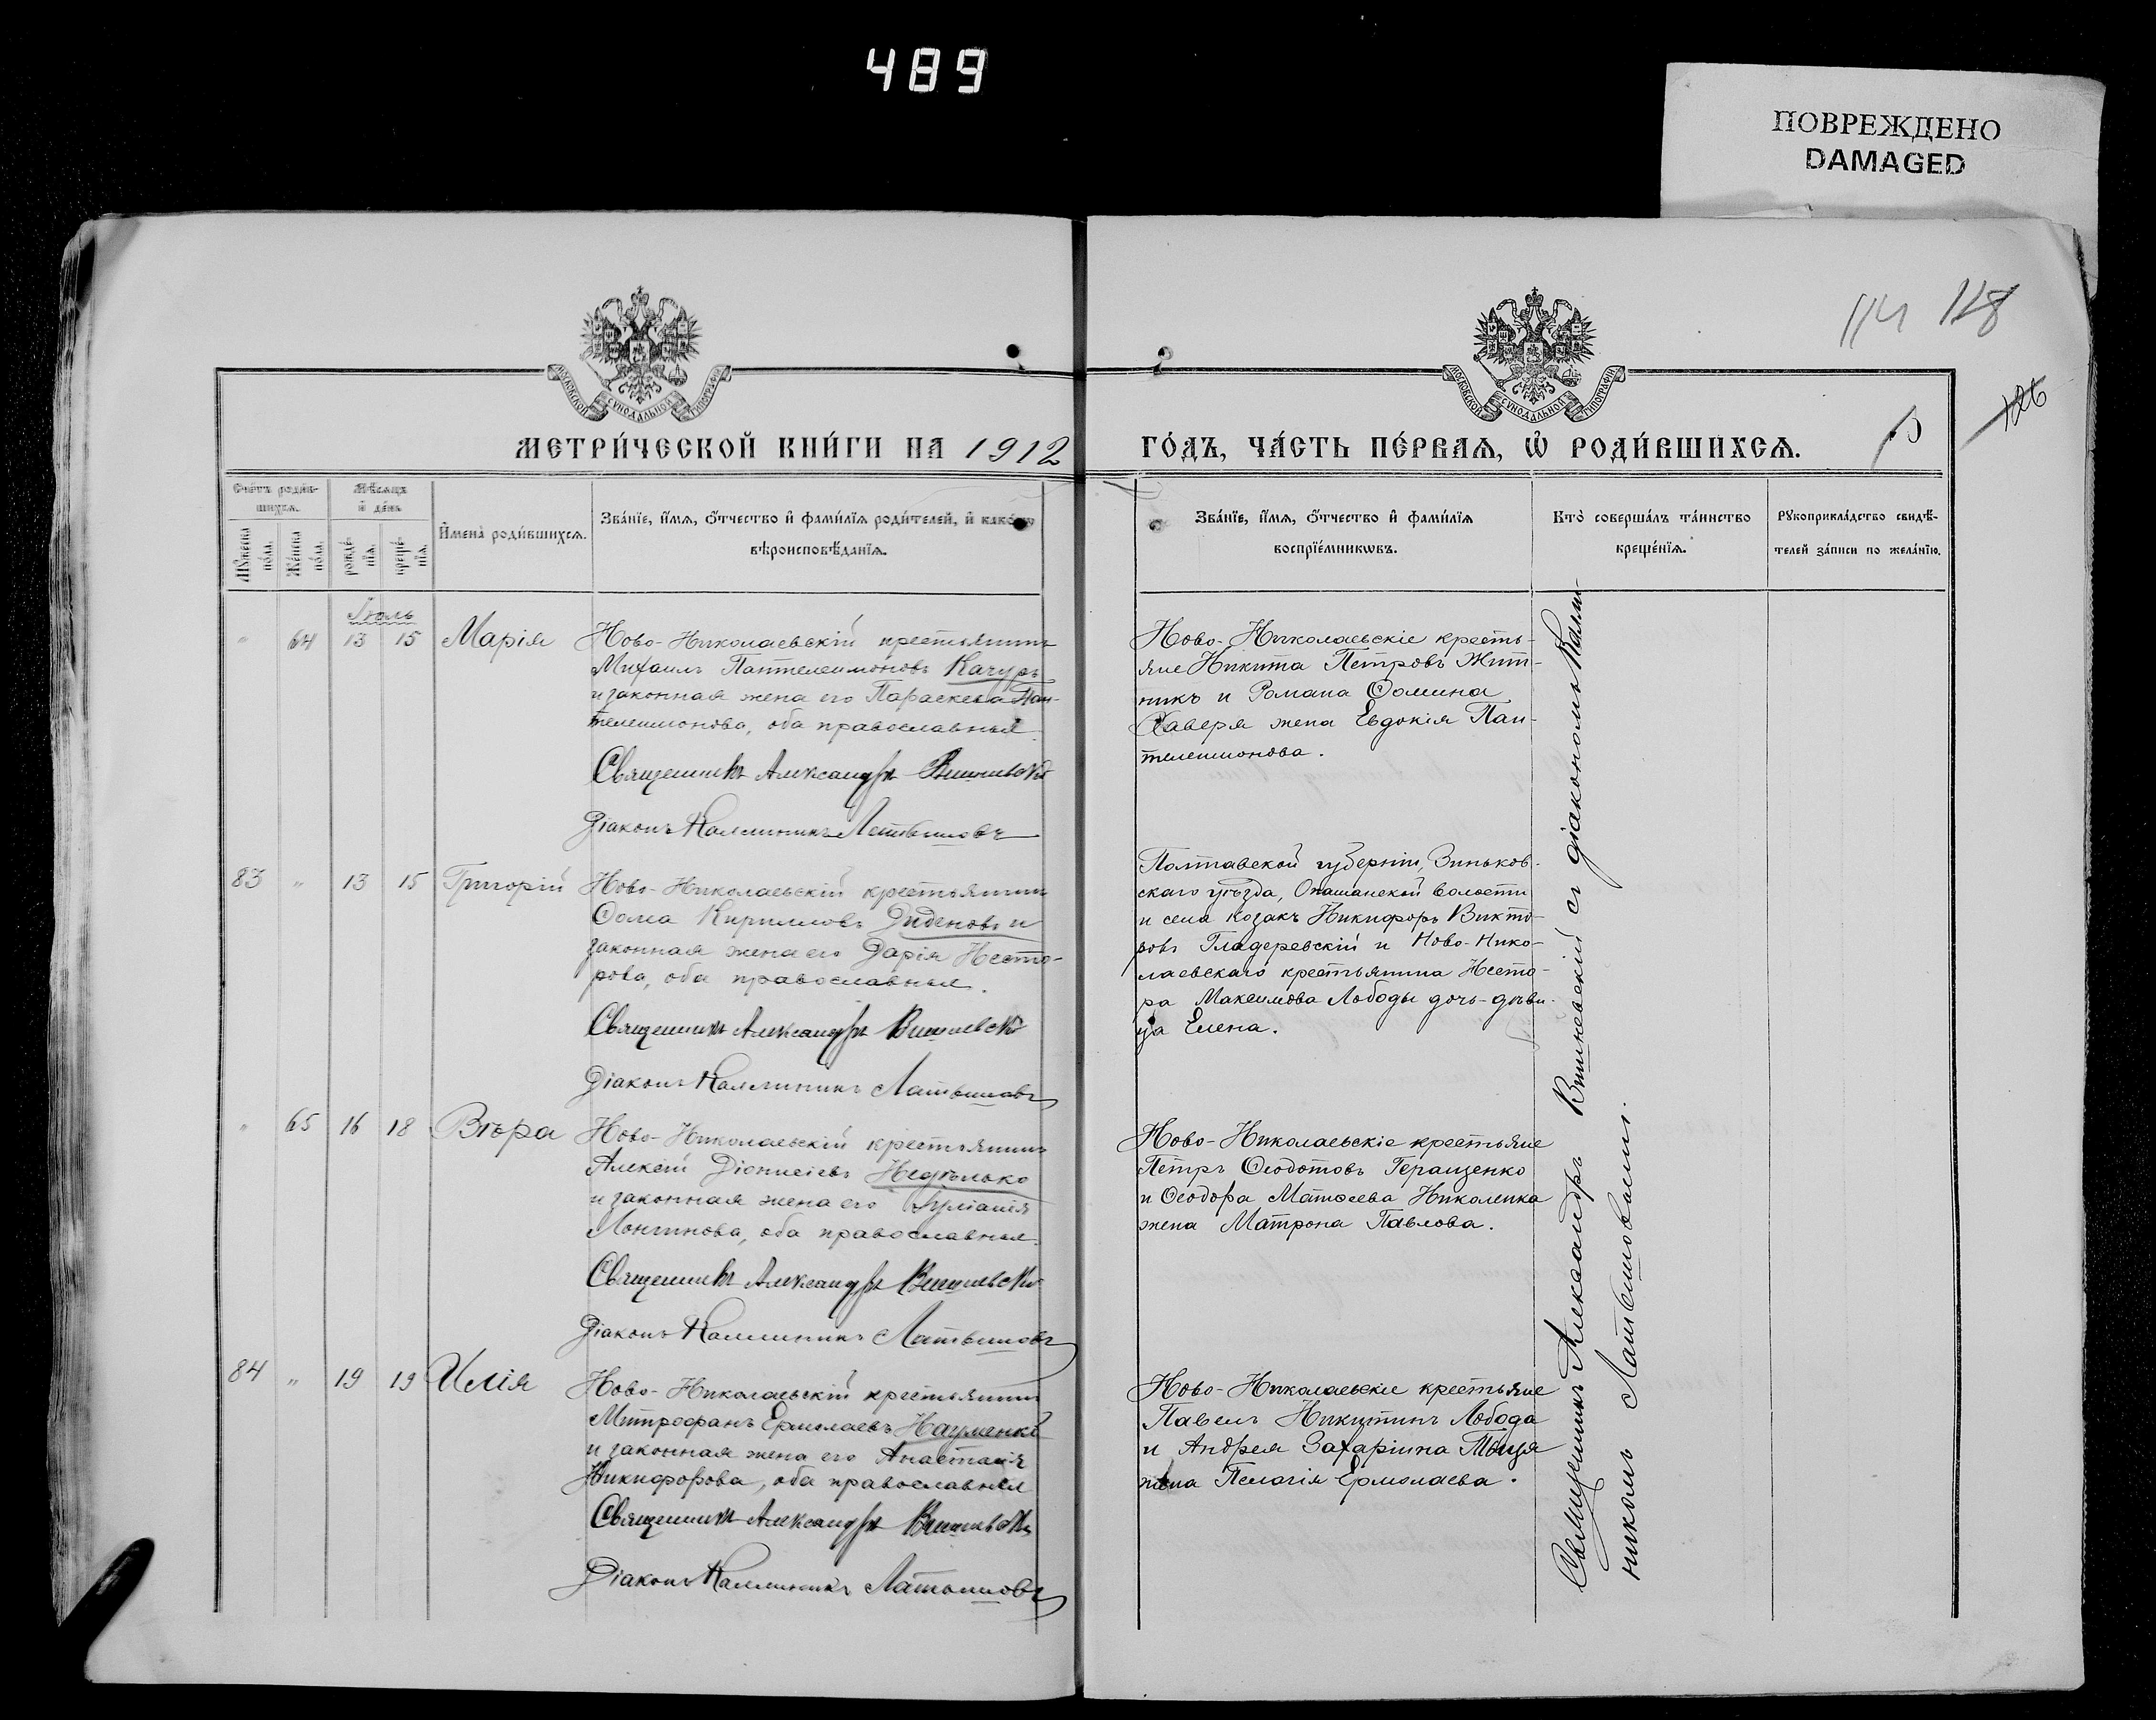 489
ПОВРЕЖДЕНО
DAMAGED
114 128
126
МОСКОВСКОЙ СѴНОДАЛЬНОЙ ТИПОГРАФІИ
МОСКОВСКОЙ СѴНОДАЛЬНОЙ ТИПОГРАФІИ
МЕТРИ́ЧЕСКОЙ КНИ́ГИ НА 1912
ГО́ДЪ, ЧА́СТЬ ПЕ́РВАѦ, Ѡ҆ РОДИ́ВШИХСѦ.
Сче́тъ роди́в-
шихсѧ.
Мꙋ́жеска по́ла.
Же́нска по́ла.
Мѣ́сѧцъ
и҆ де́нь
рожде́-
нїѧ.
креще́-
нїѧ.
И҆мена̀ роди́вшихсѧ.
Зва́нїе, и҆́мѧ, ѻ҆́тчество и҆ фами́лїѧ роди́телей, и҆ како́гѡ
вѣроисповѣ́данїѧ.
Зва́нїе, и҆́мѧ, ѻ҆́тчество и҆ фами́лїѧ
воспрїе́мникѡвъ.
Кто̀ соверша́лъ та́инство
креще́нїѧ.
Рꙋкоприкла́дство свидѣ́-
телей за́писи по жела́нїю.
Іюль
" 64 13 15 Марія
Ново-Николаевскій крестьянинъ
Михаилъ Пантелеимоновъ Качуръ
и законная жена его Параскева Пан-
телеимонова, оба православные.
Священникъ Александръ Вишневскій
Діаконъ Каллиникъ Латышовъ
Ново-Николаевскіе кресть-
яне Никита Петровъ Жит-
никъ и Романа Ѳомина
Хаверя жена Евдокія Пан-
телеимонова.
83 " 13 15 Григорій
Ново-Николаевскій крестьянинъ
Ѳома Кирилловъ Диденовъ и
законная жена его Дарія Несто-
рова, оба православные.
Священникъ Александръ Вишневскій
Діаконъ Каллиникъ Латышовъ
Полтавской губерніи, Зиньков-
скаго уѣзда, Опашанской волости
и села козакъ Никифоръ Викто-
ровъ Гладеревскій и Ново-Нико-
лаевскаго крестьянина Несто-
ра Максимова Лободы дочь-дѣви-
ца Елена.
" 65 16 18 Вѣра
Ново-Николаевскій крестьянинъ
Алексій Діонисіевъ Недѣлько
и законная жена его Іуліанія
Лонгинова, оба православные.
Священникъ Александръ Вишневскій
Діаконъ Каллиникъ Латышовъ
Ново-Николаевскіе крестьяне
Петръ Ѳеодотовъ Геращенко
и Ѳеодора Матѳеева Николенка
жена Матрона Павлова.
84 " 19 19 Илія
Ново-Николаевскій крестьянинъ
Митрофанъ Ермолаевъ Науменко
и законная жена его Анастасія
Никифорова, оба православные
Священникъ Александръ Вишневскій
Діаконъ Каллиникъ Латышовъ
Ново-Николаевскіе крестьяне
Павелъ Никитинъ Лобода
и Андрея Захаріина
жена Пелагія Ермолаева.
Священникъ Александръ Вишневскій съ діакономъ Калли-
никомъ Латышовымъ.